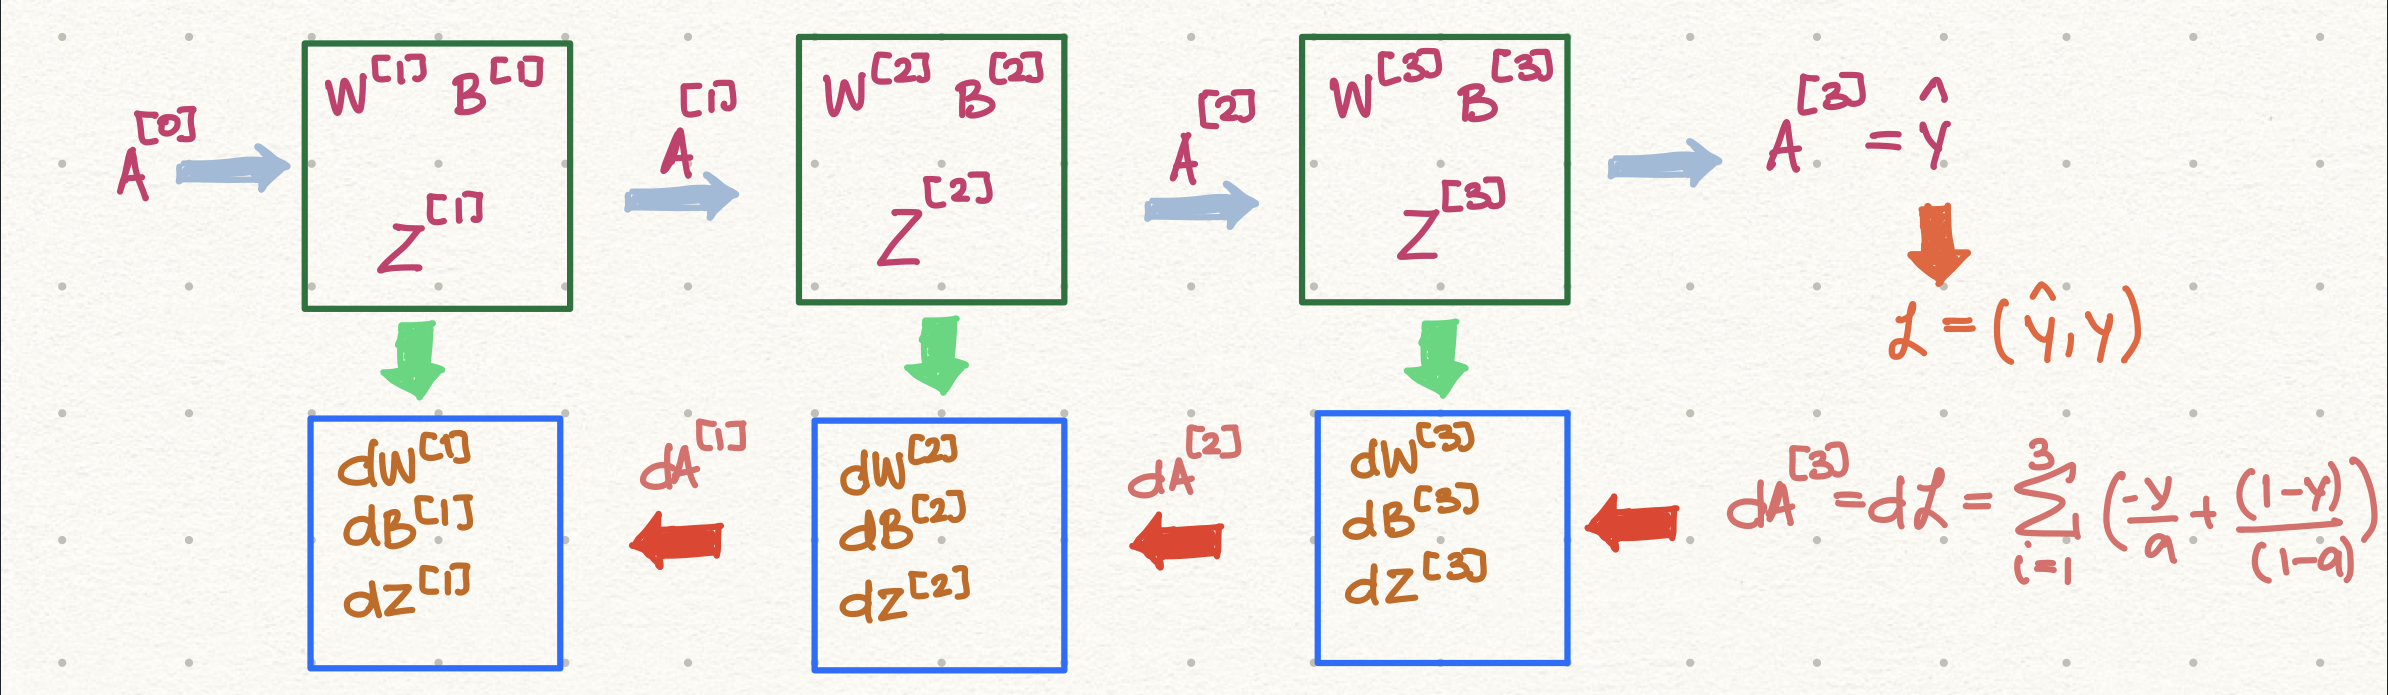 A^[0]
W^[1] B^[1]
Z^[1]
A^[1]
W^[2] B^[2]
Z^[2]
A^[2]
W^[3] B^[3]
Z^[3]
A^[3] = Ŷ
ℒ = (Ŷ, Y)
dW^[1]
dB^[1]
dZ^[1]
dA^[1]
dW^[2]
dB^[2]
dZ^[2]
dA^[2]
dW^[3]
dB^[3]
dZ^[3]
dA^[3] = dℒ = Σ_{i=1}^{3} (-y/a + (1-y)/(1-a))